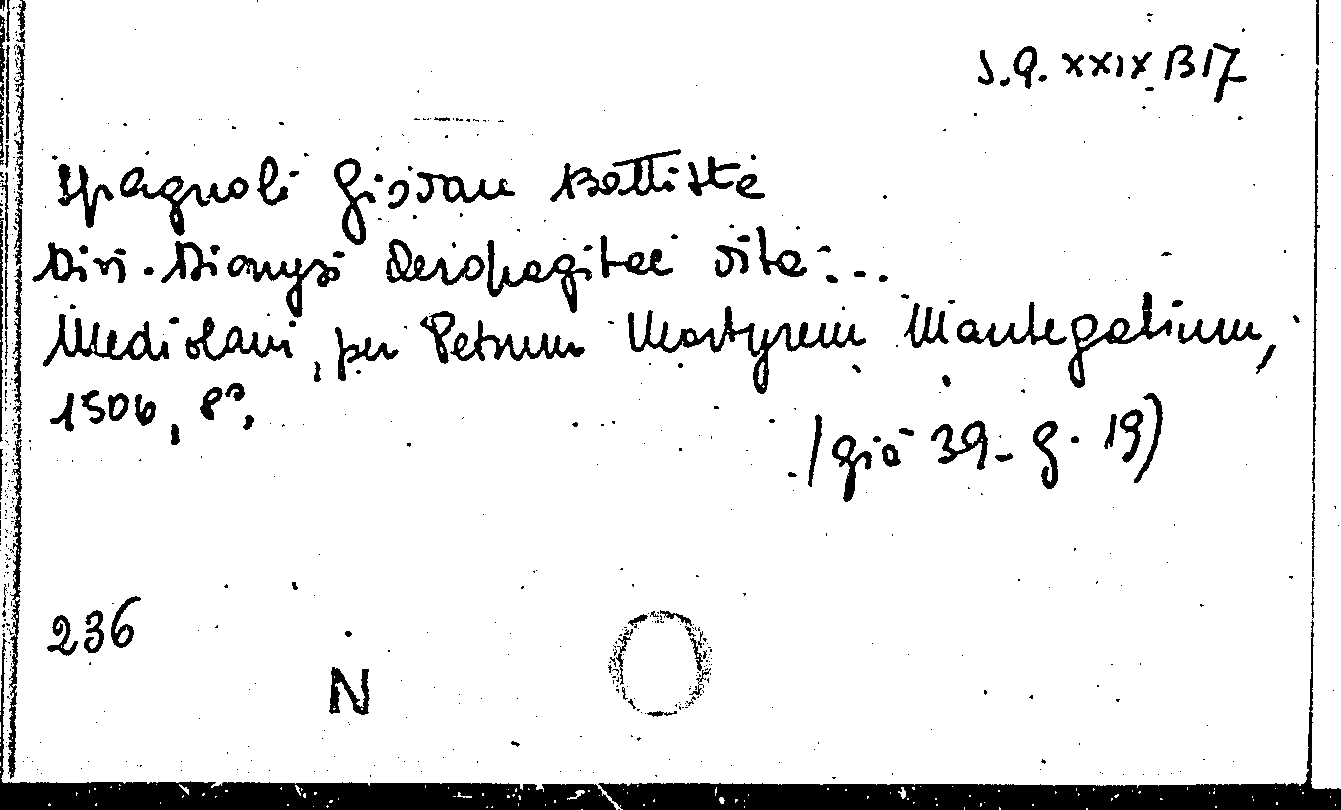 S.Q. XXIX B 17
Spagnoli Giovan Battista
Divi Dionysi Aeropagitae vita...
Mediolani, per Petrum Martyrem Mantegatium,
1506, 8°.
(già 39 - g. 19)
236
N